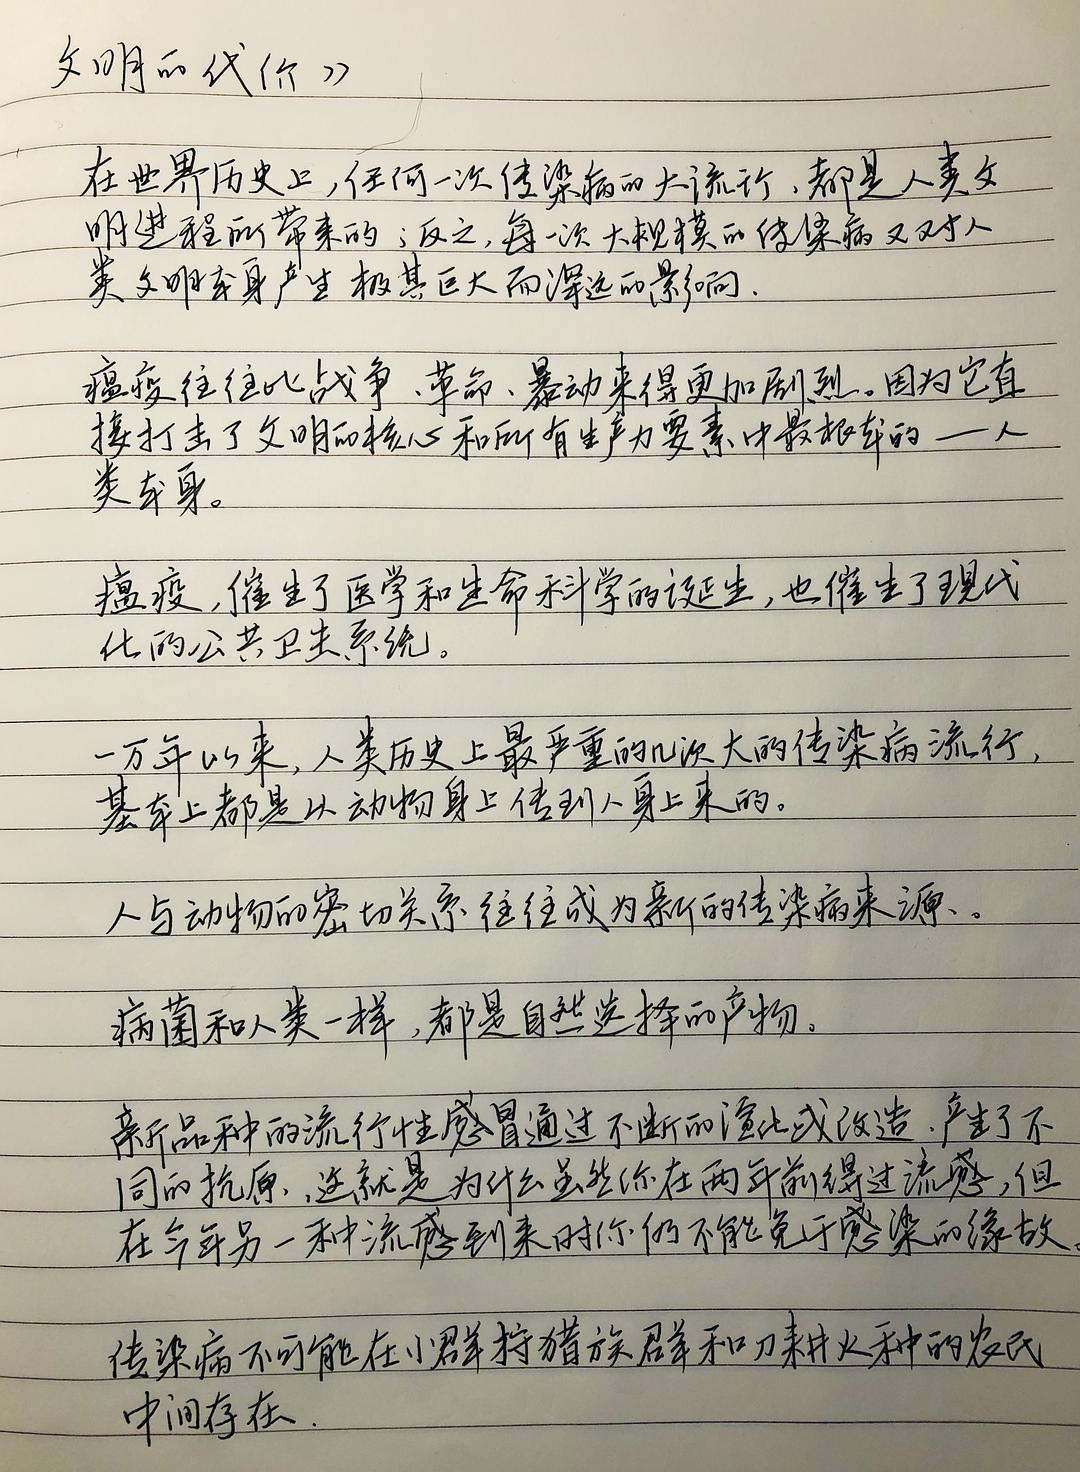 文明的代价》
在世界历史上,任何一次传染病的大流行、都是人类文
明进程所带来的;反之,每一次大规模的传染病又对人
类文明本身产生极其巨大而深远的影响.
瘟疫往往比战争、革命、暴动来得更加剧烈。因为它直
接打击了文明的核心和所有生产力要素中最根本的——人
类本身。
瘟疫,催生了医学和生命科学的诞生,也催生了现代
化的公共卫生系统。
一万年以来,人类历史上最严重的几次大的传染病流行,
基本上都是从动物身上传到人身上来的。
人与动物的密切关系往往成为新的传染病来源、。
病菌和人类一样,都是自然选择的产物。
新品种的流行性感冒通过不断的演化或改造、产生了不
同的抗原、这就是为什么虽然你在两年前得过流感,但
在今年另一种流感到来时你仍不能免于感染的缘故。
传染病不可能在小群狩猎族群和刀耕火种的农民
中间存在.